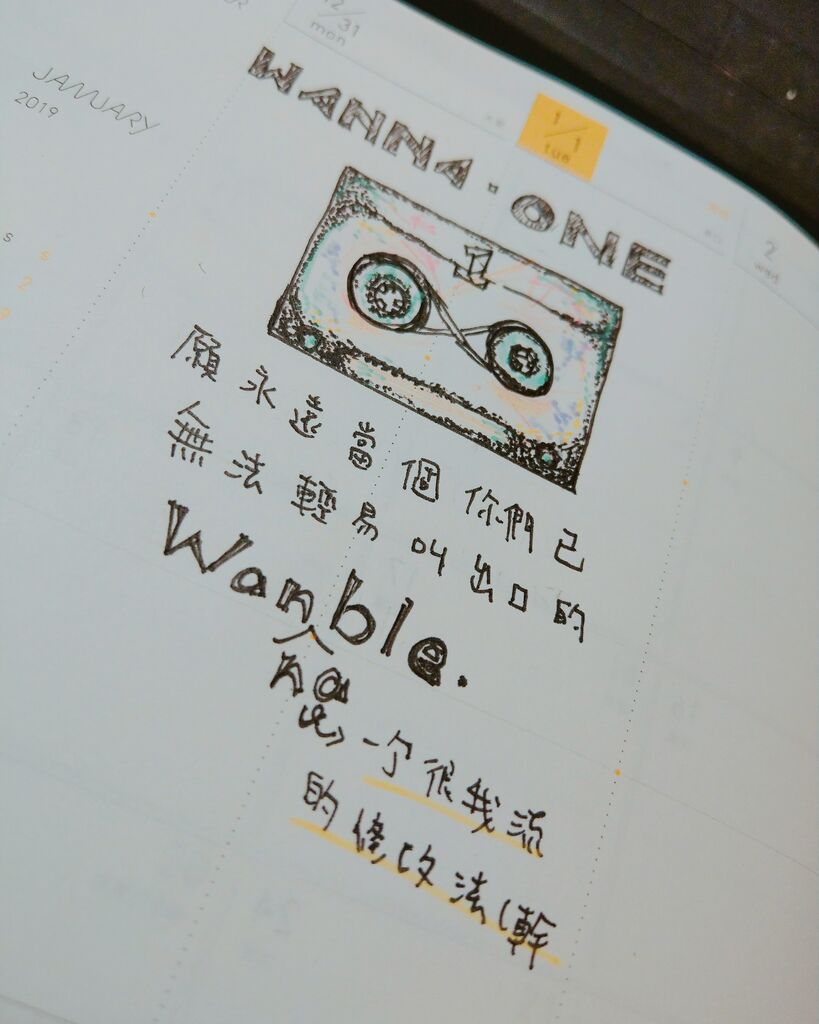 12/31
mon
JANUARY
2019
1/1
tue
2
wed
WANNA·ONE
願永遠當個你們已
無法輕易叫出口的
Wanble.
na
一个很我流
的修改法(幹